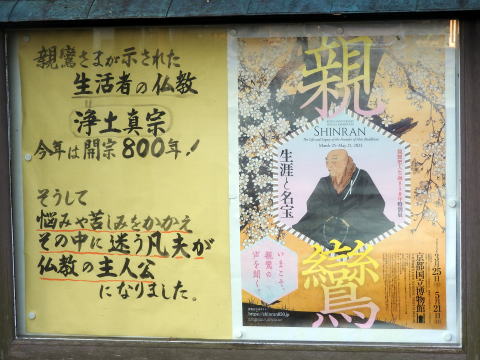 親鸞さまが示された
生活者の仏教
浄土真宗
今年は開宗800年!
そうして
悩みや苦しみをかかえ
その中に迷う凡夫が
仏教の主人公
になりました。
親
SHINRAN
The Life and Legacy of the Founder of Shin Buddhism
March 25–May 21, 2023
親鸞聖人生誕850年特別展
生涯と名宝
鸞
いまこそ、
親鸞の
声を聞く。
3月25日
5月21日
京都国立博物館
https://shinran850.jp